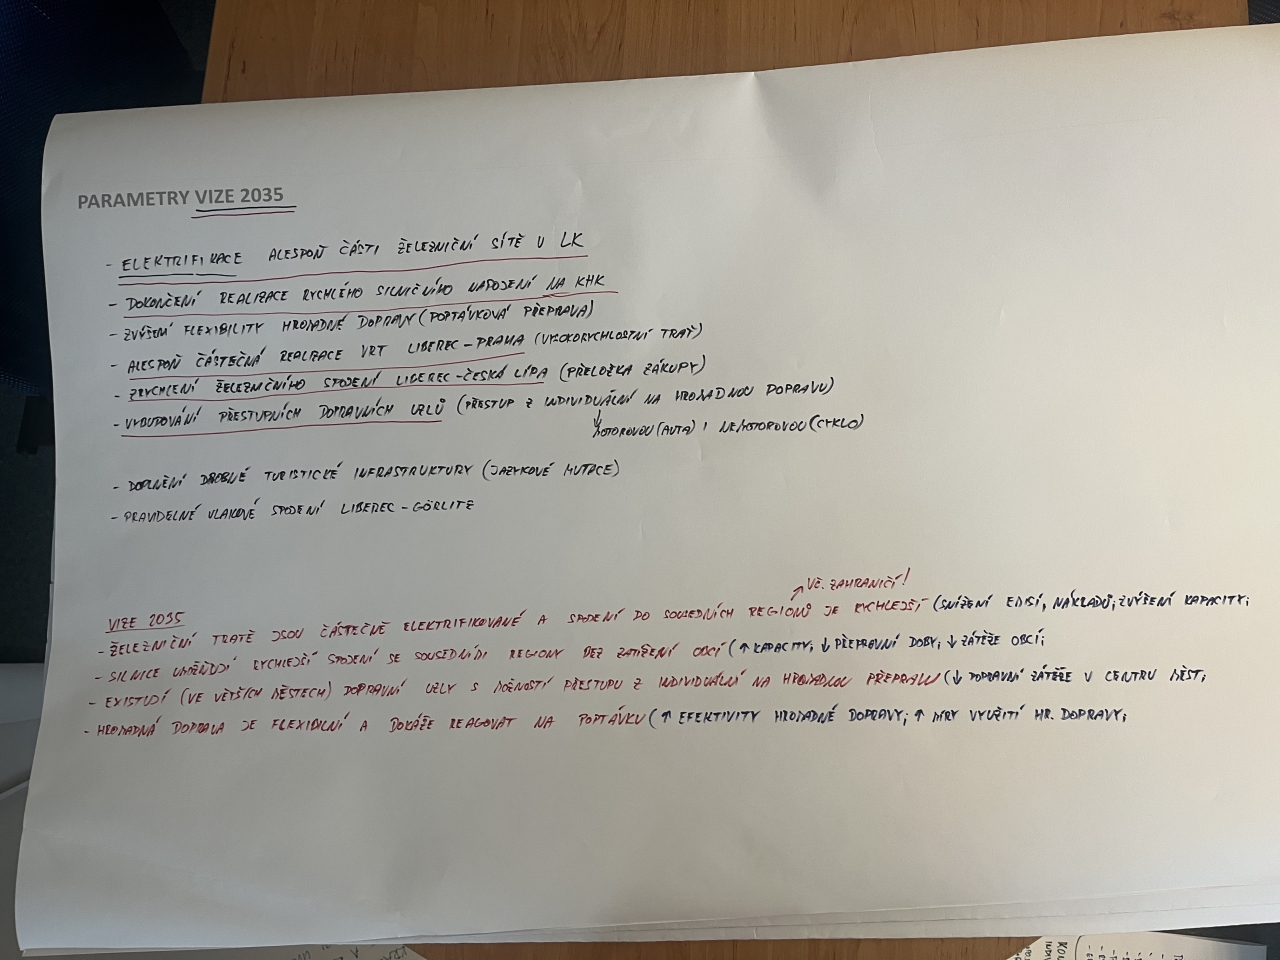 PARAMETRY VIZE 2035
- ELEKTRIFIKACE ALESPOŇ ČÁSTI ŽELEZNIČNÍ SÍTĚ V LK
- DOKONČENÍ REALIZACE RYCHLÉHO SILNIČNÍHO NAPOJENÍ NA KHK
- ZVÝŠENÍ FLEXIBILITY HROMADNÉ DOPRAVY (POPTÁVKOVÁ PŘEPRAVA)
- ALESPOŇ ČÁSTEČNÁ REALIZACE VRT LIBEREC-PRAHA (VYSOKORYCHLOSTNÍ TRAŤ)
- ZRYCHLENÍ ŽELEZNIČNÍHO SPOJENÍ LIBEREC-ČESKÁ LÍPA (PŘELOŽKA ZÁKUPY)
- VYBUDOVÁNÍ PŘESTUPNÍCH DOPRAVNÍCH UZLŮ (PŘESTUP Z INDIVIDUÁLNÍ NA HROMADNOU DOPRAVU)
↓ MOTOROVOU (AUTA) I NEMOTOROVOU (CYKLO)
- DOPLNĚNÍ DROBNÉ TURISTICKÉ INFRASTRUKTURY (JAZYKOVÉ MUTACE)
- PRAVIDELNÉ VLAKOVÉ SPOJENÍ LIBEREC-GÖRLITZ
↗ VČ. ZAHRANIČÍ!
VIZE 2035
- ŽELEZNIČNÍ TRATĚ JSOU ČÁSTEČNĚ ELEKTRIFIKOVANÉ A SPOJENÍ DO SOUSEDNÍCH REGIONŮ JE RYCHLEJŠÍ (SNÍŽENÍ EMISÍ, NÁKLADŮ; ZVÝŠENÍ KAPACITY;
- SILNICE UMOŽŇUJÍ RYCHLEJŠÍ SPOJENÍ SE SOUSEDNÍMI REGIONY BEZ ZATÍŽENÍ OBCÍ (↑ KAPACITY; ↓ PŘEPRAVNÍ DOBY; ↓ ZÁTĚŽE OBCÍ;
- EXISTUJÍ (VE VĚTŠÍCH MĚSTECH) DOPRAVNÍ UZLY S MOŽNOSTÍ PŘESTUPU Z INDIVIDUÁLNÍ NA HROMADNOU PŘEPRAVU (↓ DOPRAVNÍ ZÁTĚŽE V CENTRU MĚST;
- HROMADNÁ DOPRAVA JE FLEXIBILNÍ A DOKÁŽE REAGOVAT NA POPTÁVKU (↑ EFEKTIVITY HROMADNÉ DOPRAVY; ↑ MÍRY VYUŽITÍ HR. DOPRAVY;